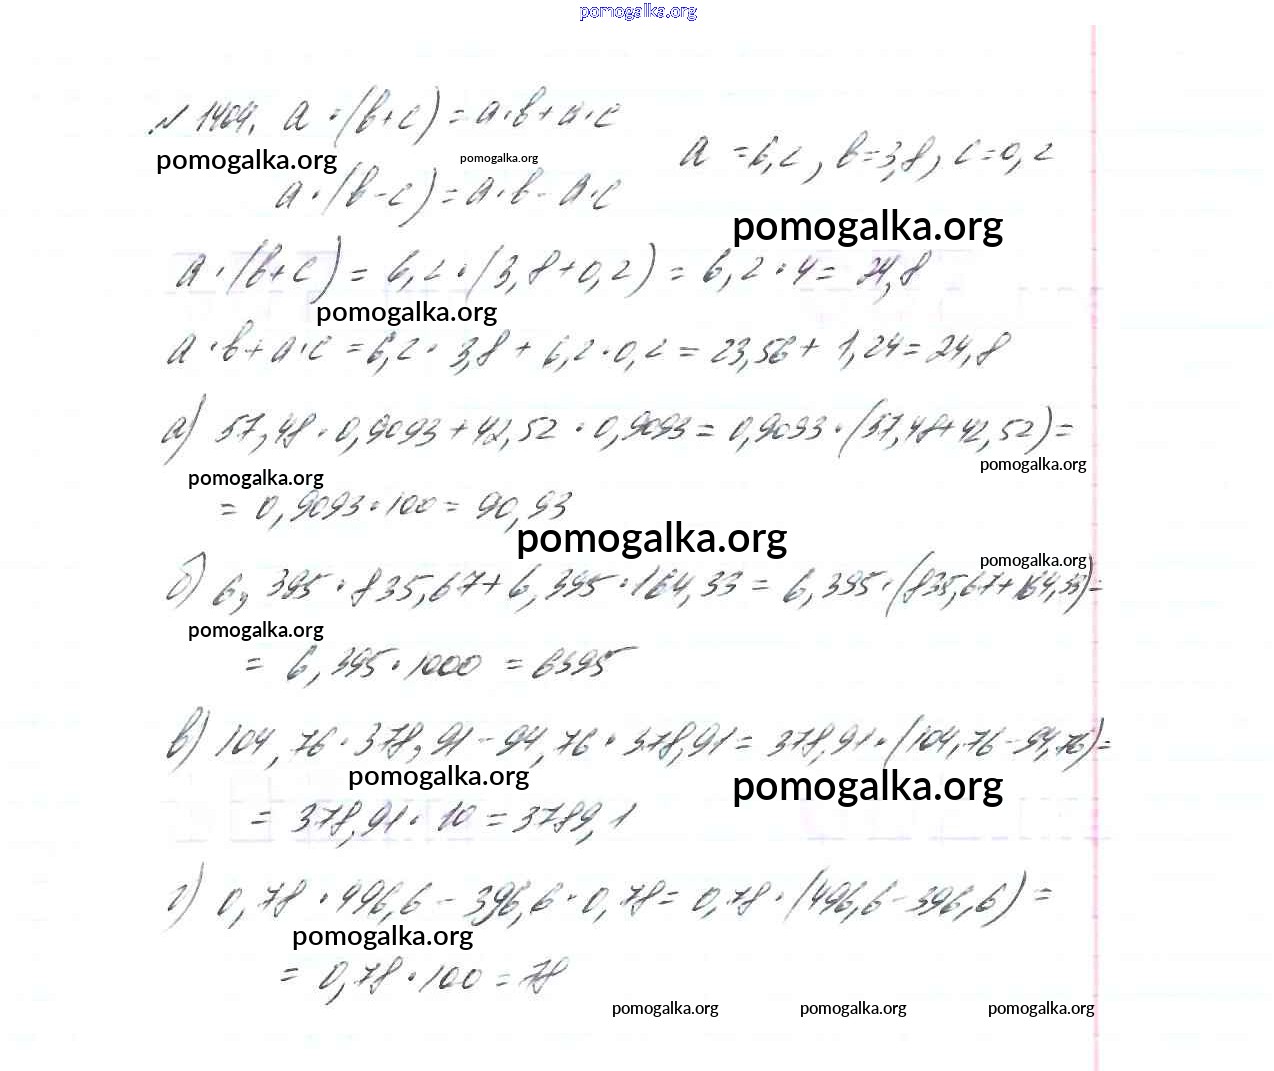 pomogalka.org
№ 1404. a·(b+c)=a·b+a·c
a=6,2, b=3,8, c=0,2
pomogalka.org pomogalka.org
a·(b-c)=a·b-a·c
pomogalka.org
a·(b+c)=6,2·(3,8+0,2)=6,2·4=24,8
pomogalka.org
a·b+a·c=6,2·3,8+6,2·0,2=23,56+1,24=24,8
а) 57,48·0,9093+42,52·0,9093=0,9093·(57,48+42,52)=
pomogalka.org pomogalka.org
=0,9093·100=90,93
pomogalka.org
pomogalka.org
б) 6,395·835,67+6,395·164,33=6,395·(835,67+164,33)=
pomogalka.org
=6,395·1000=6395
в) 104,76·378,91-94,76·378,91=378,91·(104,76-94,76)=
pomogalka.org pomogalka.org
=378,91·10=3789,1
г) 0,78·496,6-396,6·0,78=0,78·(496,6-396,6)=
pomogalka.org
=0,78·100=78
pomogalka.org pomogalka.org pomogalka.org